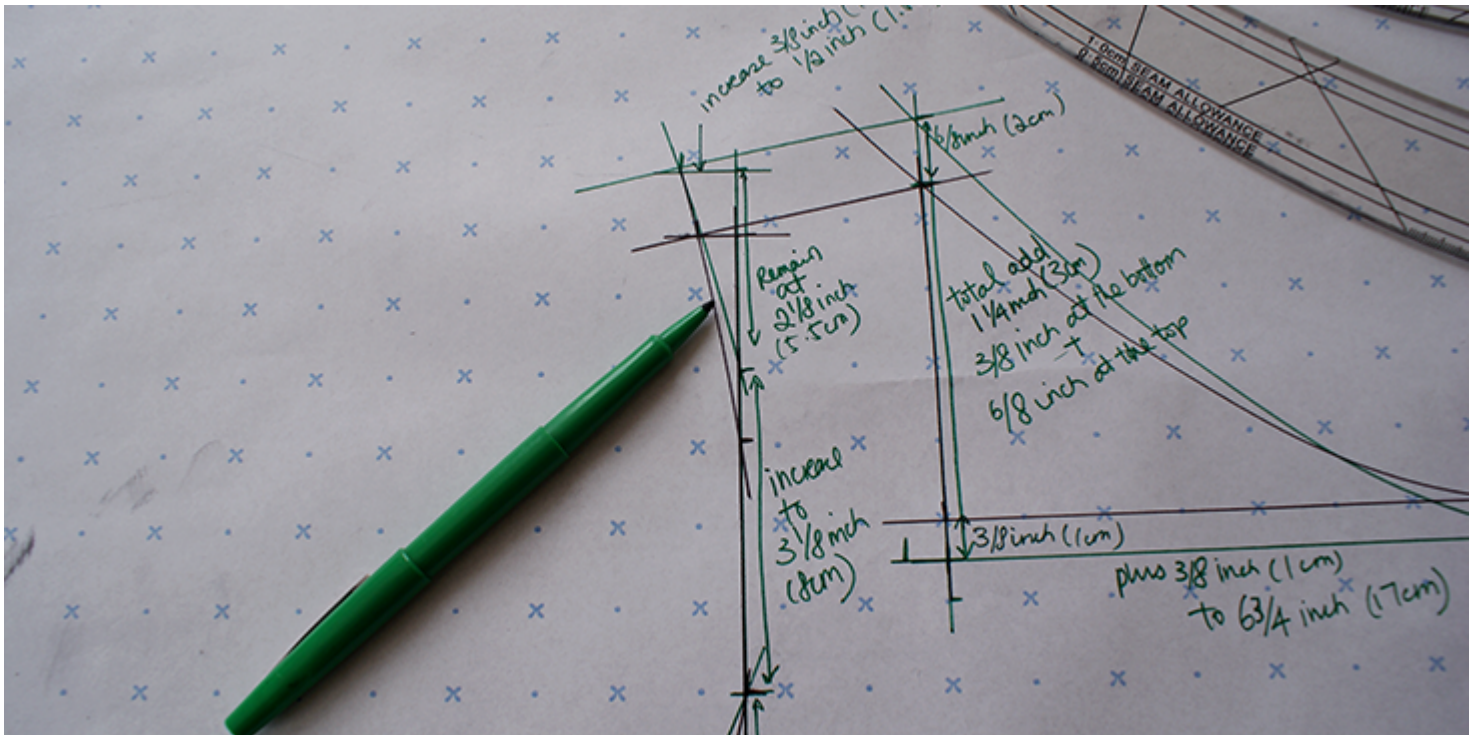 increase 3/8 inch (1.
to 1/2 inch (1.
1·0cm SEAM ALLOWANCE
0·6cm SEAM ALLOWANCE
6/8 inch (2cm)
Remain
at
2 1/8 inch
(5.5cm)
total add
1 1/4 inch (3cm)
3/8 inch at the bottom
+
6/8 inch at the top
increase
to
3 1/8 inch
(8cm)
3/8 inch (1cm)
plus 3/8 inch (1cm)
to 6 3/4 inch (17cm)